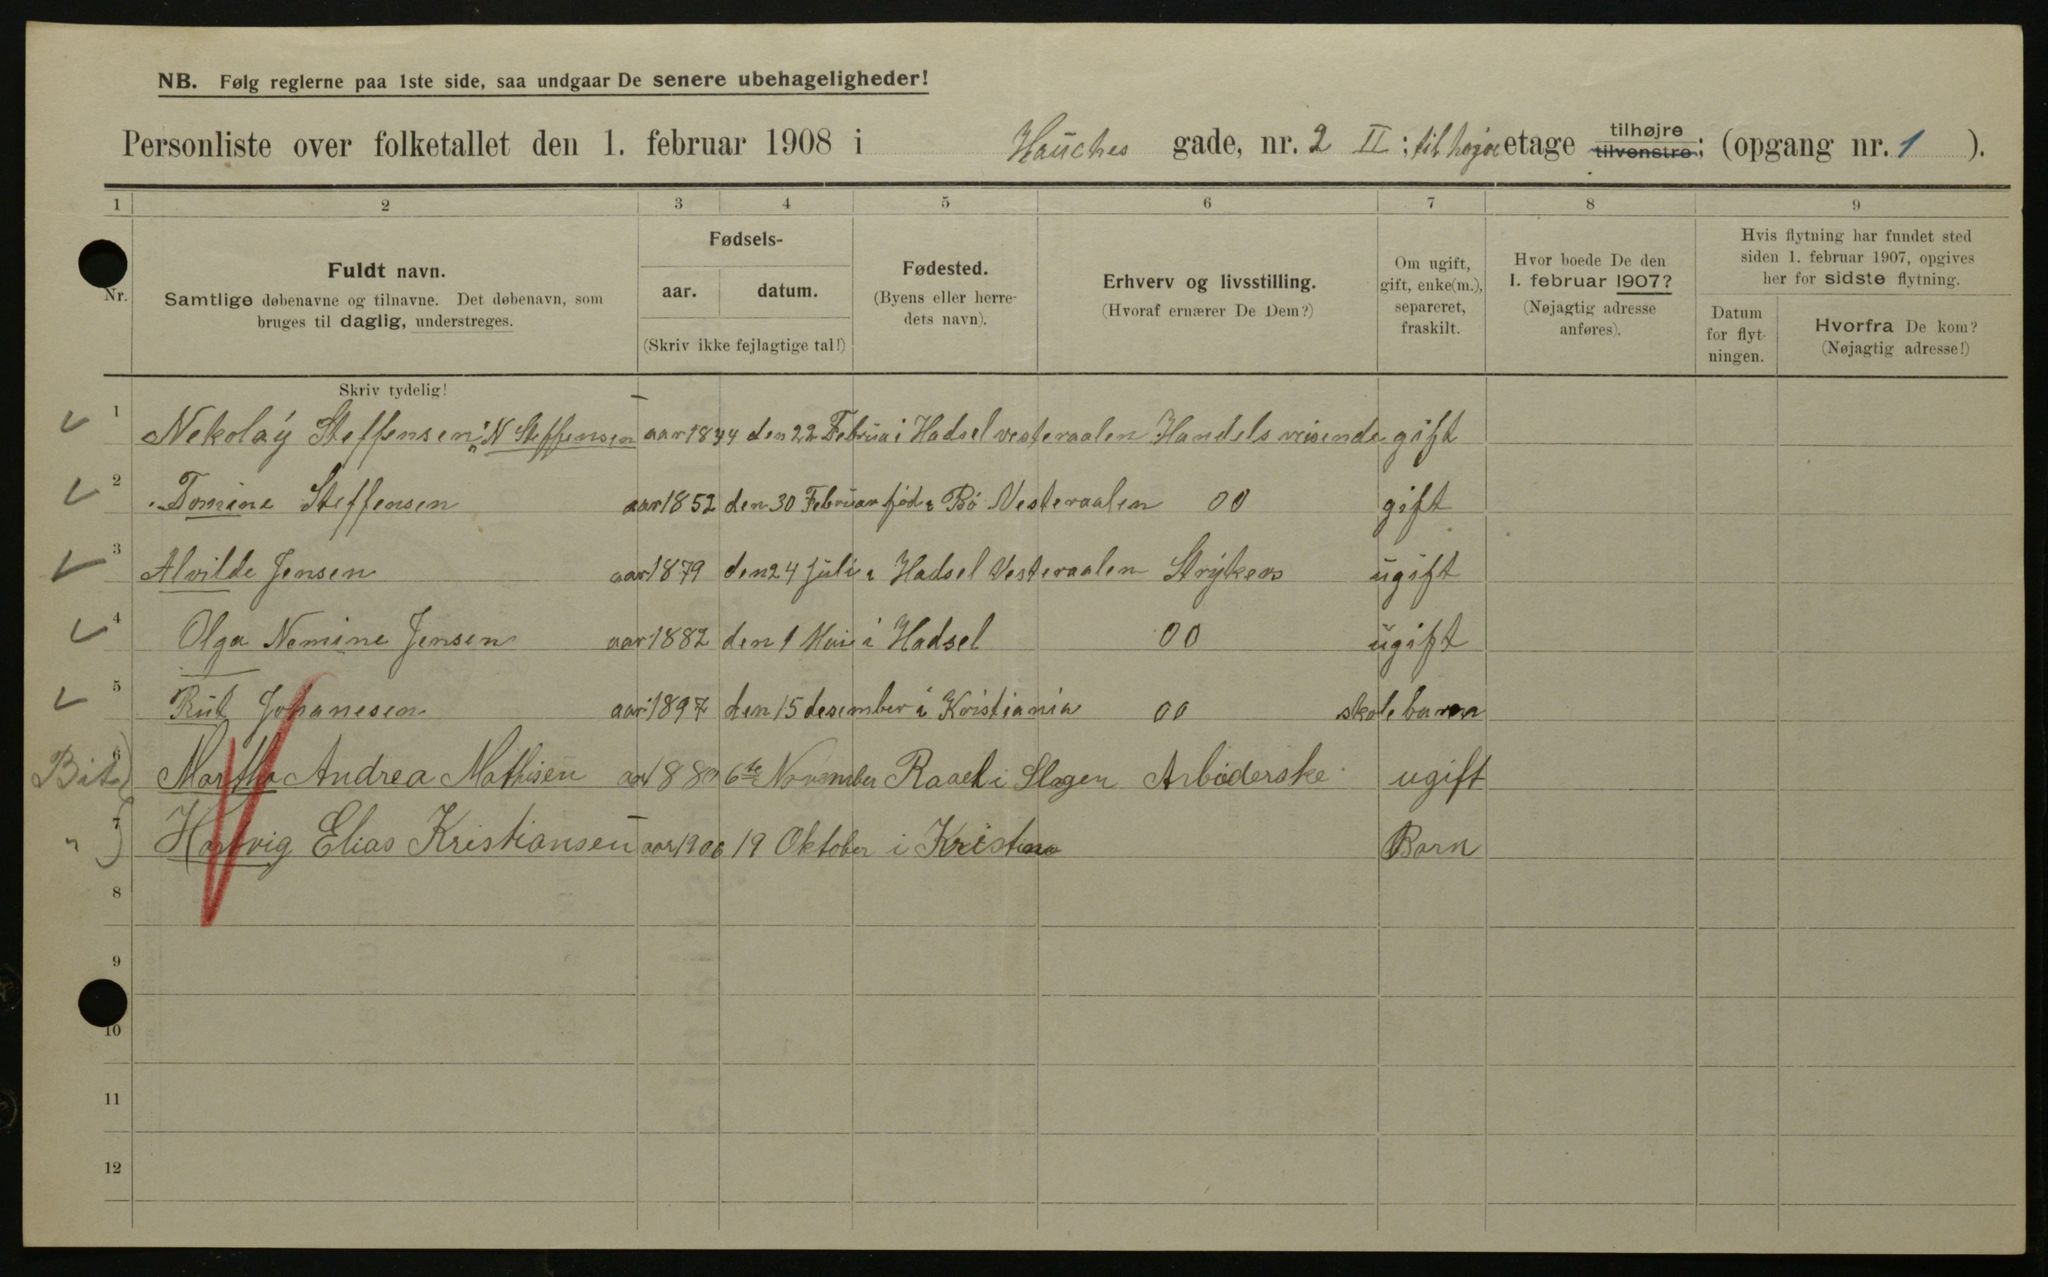 NB. Følg reglerne paa 1ste side, saa undgaar De senere ubehageligheder!
Personliste over folketallet den 1. februar 1908 i Hauches gade, nr. 2 II ; til høgre etage tilhøjre tilvenstre; (opgang nr. 1 ).
1 2 3 4 5 6 7 8 9
Nr.
Fuldt navn.
Samtlige døbenavne og tilnavne. Det døbenavn, som
bruges til daglig, understreges.
Fødsels-
aar. datum.
(Skriv ikke fejlagtige tal!)
Fødested.
(Byens eller herre-
dets navn).
Erhverv og livsstilling.
(Hvoraf ernærer De Dem?)
Om ugift,
gift, enke(m.),
separeret,
fraskilt.
Hvor boede De den
1. februar 1907?
(Nøjagtig adresse
anføres).
Hvis flytning har fundet sted
siden 1. februar 1907, opgives
her for sidste flytning.
Datum
for flyt-
ningen.
Hvorfra De kom?
(Nøjagtig adresse!)
Skriv tydelig!
1 Nekolaÿ Steffensen "N Steffensen aar 1844 den 22 Februa i Hadsel vesteraalen Handels reisende gift
2 Tomine Steffensen aar 1852 den 30 Februar fød i Bø Vesteraalen 00 gift
3 Alvilde Jensen aar 1879 den 24 Juli i Hadsel Vesteraalen Strÿkers ugift
4 Olga Nomine Jensen aar 1882 den 1 Mai i Hadsel 00 ugift
5 Rut Johanesen aar 1897 den 15 desember i Kristiania 00 skolebarn
6 Martha Andrea Mathisen aar 1880 6te November Raael i Slagen Arbiderske ugift
7 Hartvig Elias Kristiansen aar 1906 19 Oktober i Kristina Barn
8
9
10
11
12